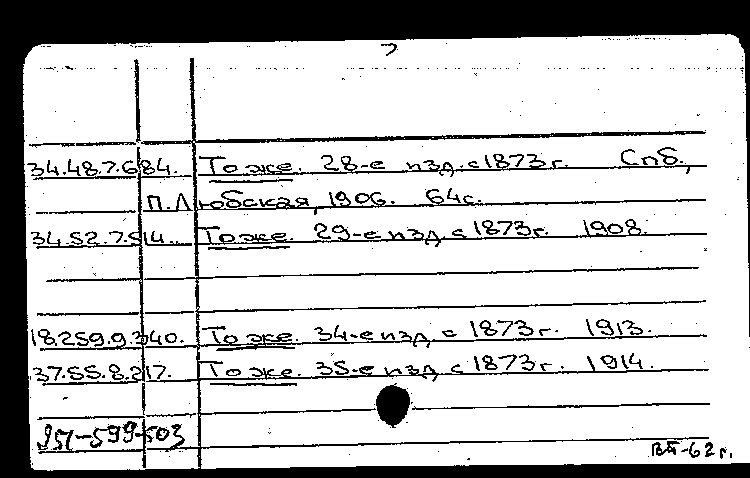 34.48.7.684. То же. 28-е изд. с 1873 г. Спб.,
П. Люборская, 1906. 64 с.
34.52.7.514. То же. 29-е изд. с 1873 г. 1908.
18.259.9.340. То же. 34-е изд. с 1873 г. 1913.
37.55.8.217. То же. 35-е изд. с 1873 г. 1914.
951-599-603
62 г.